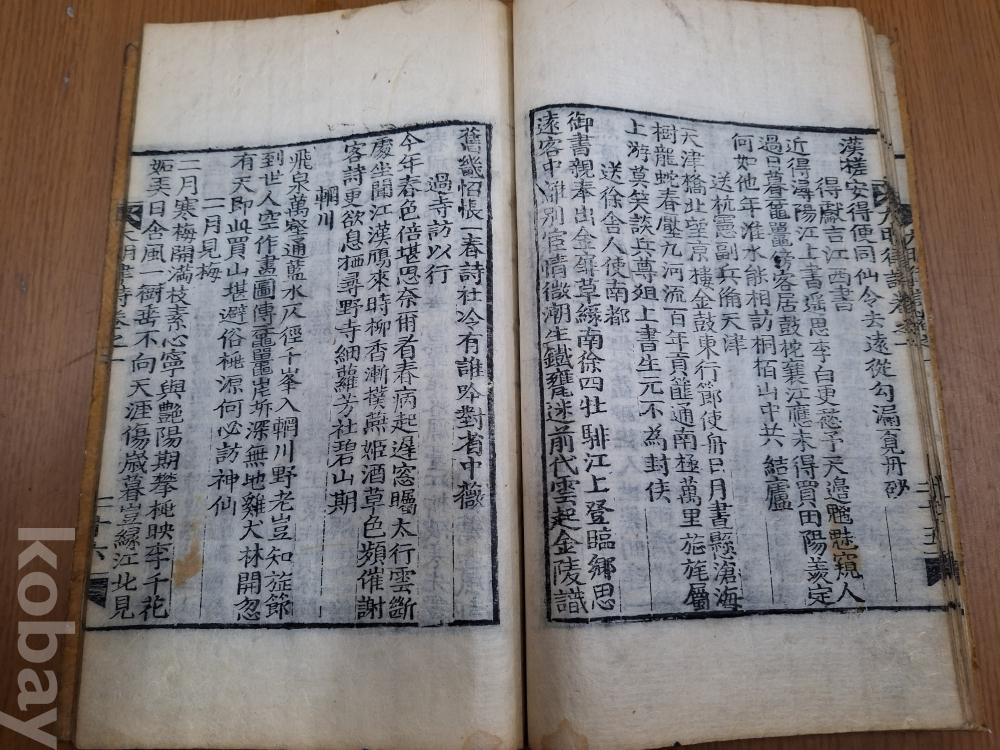 漢槎安得便同仙令去遠從勾漏覓丹砂
得獻吉江西書
近得潯陽江上書遙思李白更愁予天邊魑魅窺人
過日暮黿鼉傍客居鼓枻襄江應未得買田陽羨定
何如他年淮水能相訪桐栢山中共結廬
送杭憲副兵備天津
天津橋北望京樓金鼓東行節使舟日月書懸滄海
樹龍蛇春壓九河流百年貢篚通南極萬里旌旄屬
上游莫笑談兵尊俎上書生元不為封侯
送徐舍人使南都
御書親奉出金縢草綠南徐四牡騑江上登臨鄉思
遠客中離別宦情微潮生鐵甕迷前代雲起金陵識
舊畿怊悵一春詩社冷有誰吟對省中薇
過寺訪以行
今年春色倍堪思奈爾看春病起遲窓矚太行雲斷
處坐聞江漢鴈來時柳香漸撲燕姬酒草色頻催謝
客詩更欲息栖尋野寺細蘿芳社碧山期
輞川
飛泉萬壑通藍水仄徑千峯入輞川野老豈知旌節
到世人空作畫圖傳黿鼉岸坼深無地雞犬林開忽
有天即此買山堪避俗桃源何必訪神仙
二月見梅
二月寒梅開滿枝素心寧與艷陽期攀桃映李千花
妬美日含風一樹垂不向天涯傷歲暮豈緣江北見
二十五
二十六
kobay